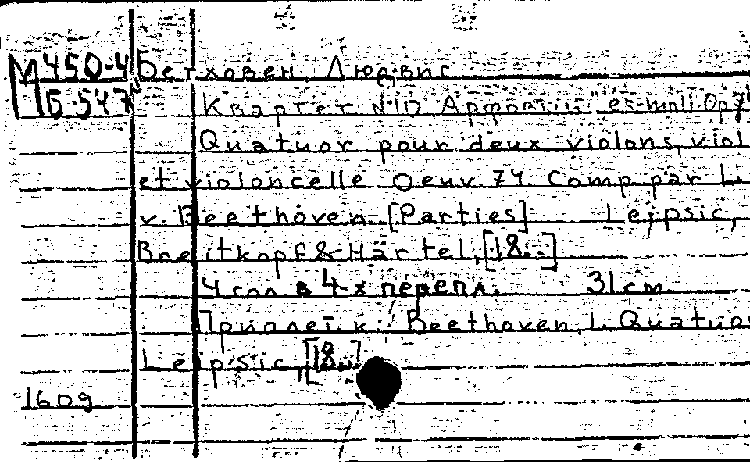 М 450-4 Бетховен, Людвиг
Б-547 Квартет №10 Арфовый "es-moll Op 7
Quatuor pour deux violons, viol
et violoncelle Oeuv. 74 Comp. par L.
v. Beethoven [Parties] Leipsic,
Breitkopf & Härtel, [18..]
4 гол в 4-х перепл. 31 cm
Приплет. к: Beethoven, L. Quatuor
Leipsic, [18..]
1609